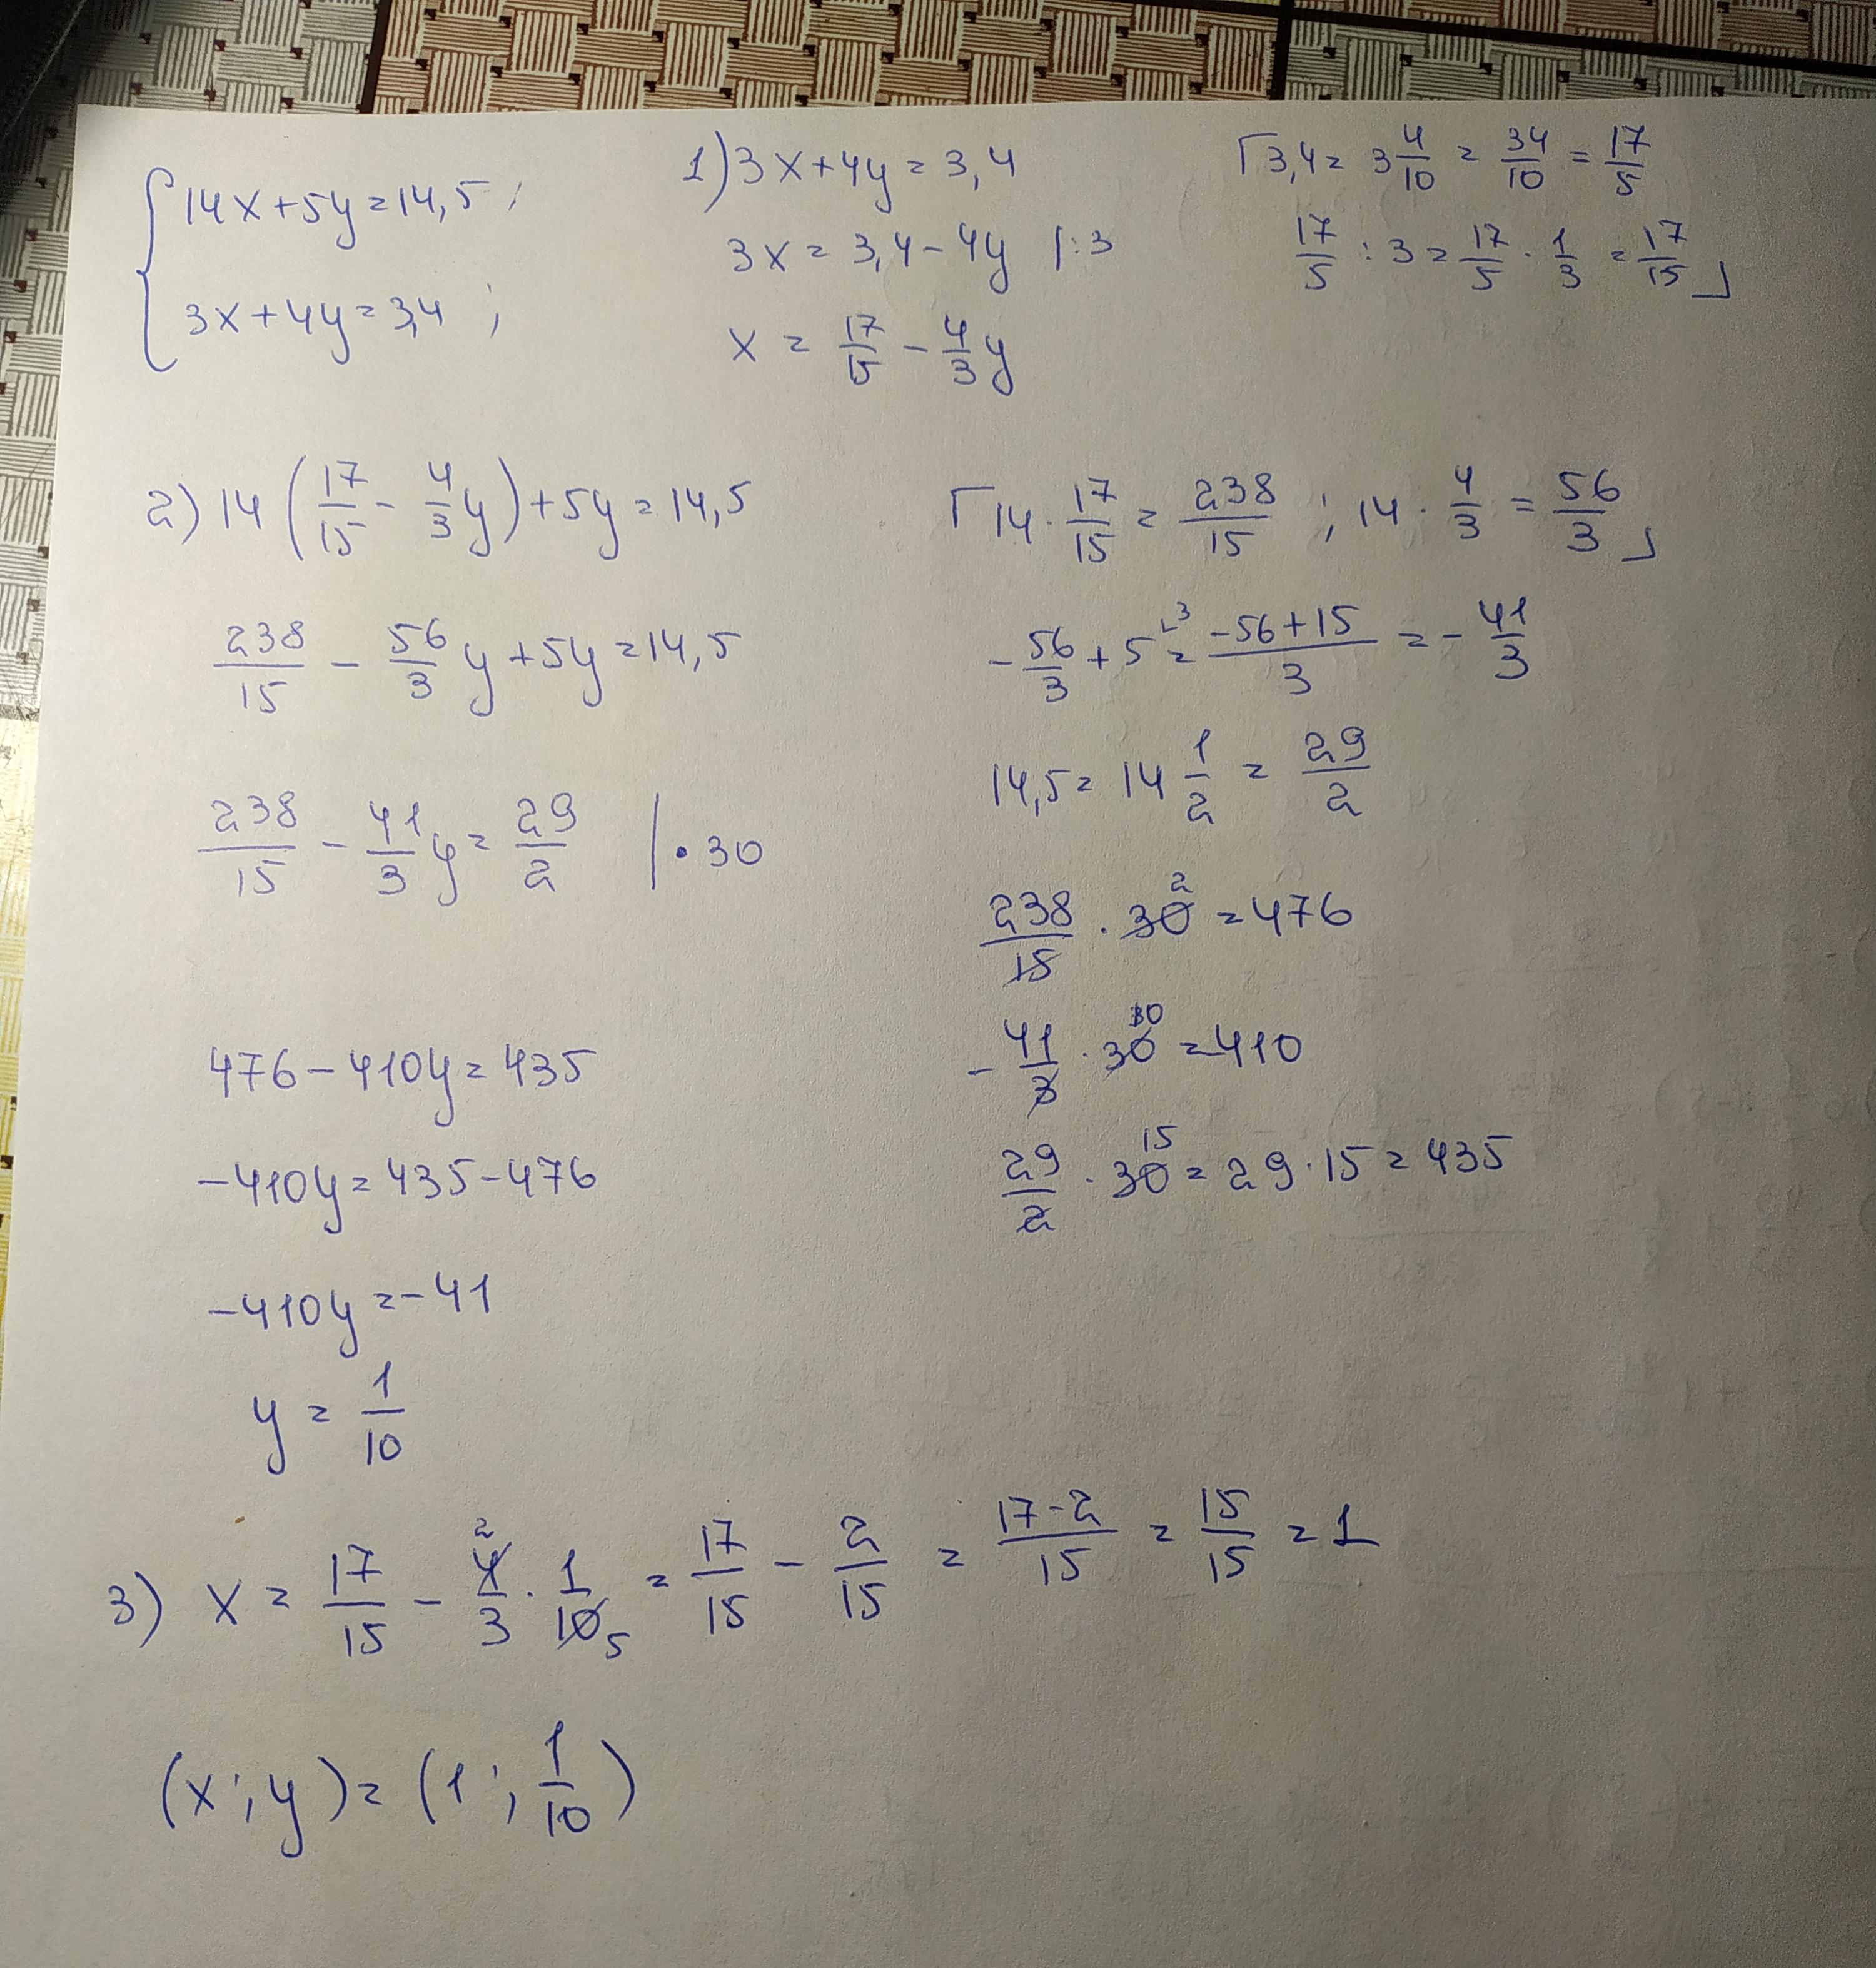 { 14x+5y=14,5;
3x+4y=3,4;
1) 3x+4y=3,4
3x=3,4-4y |:3
x = 17/15 - 4/3 y
⌈3,4 = 3 4/10 = 34/10 = 17/5
17/5 : 3 = 17/5 · 1/3 = 17/15 ⌋
2) 14 (17/15 - 4/3 y) + 5y = 14,5
⌈14 · 17/15 = 238/15 ; 14 · 4/3 = 56/3 ⌋
238/15 - 56/3 y + 5y = 14,5
- 56/3 + 5 ⌞3 = (-56+15)/3 = - 41/3
14,5 = 14 1/2 = 29/2
238/15 - 41/3 y = 29/2 | · 30
238/15 · 30 2 = 476
476 - 410y = 435
- 41/3 · 30 10 = -410
-410y = 435 - 476
29/2 · 30 15 = 29 · 15 = 435
-410y = -41
y = 1/10
3) x = 17/15 - 4 2/3 · 1/10 5 = 17/15 - 2/15 = (17-2)/15 = 15/15 = 1
(x;y) = (1; 1/10)